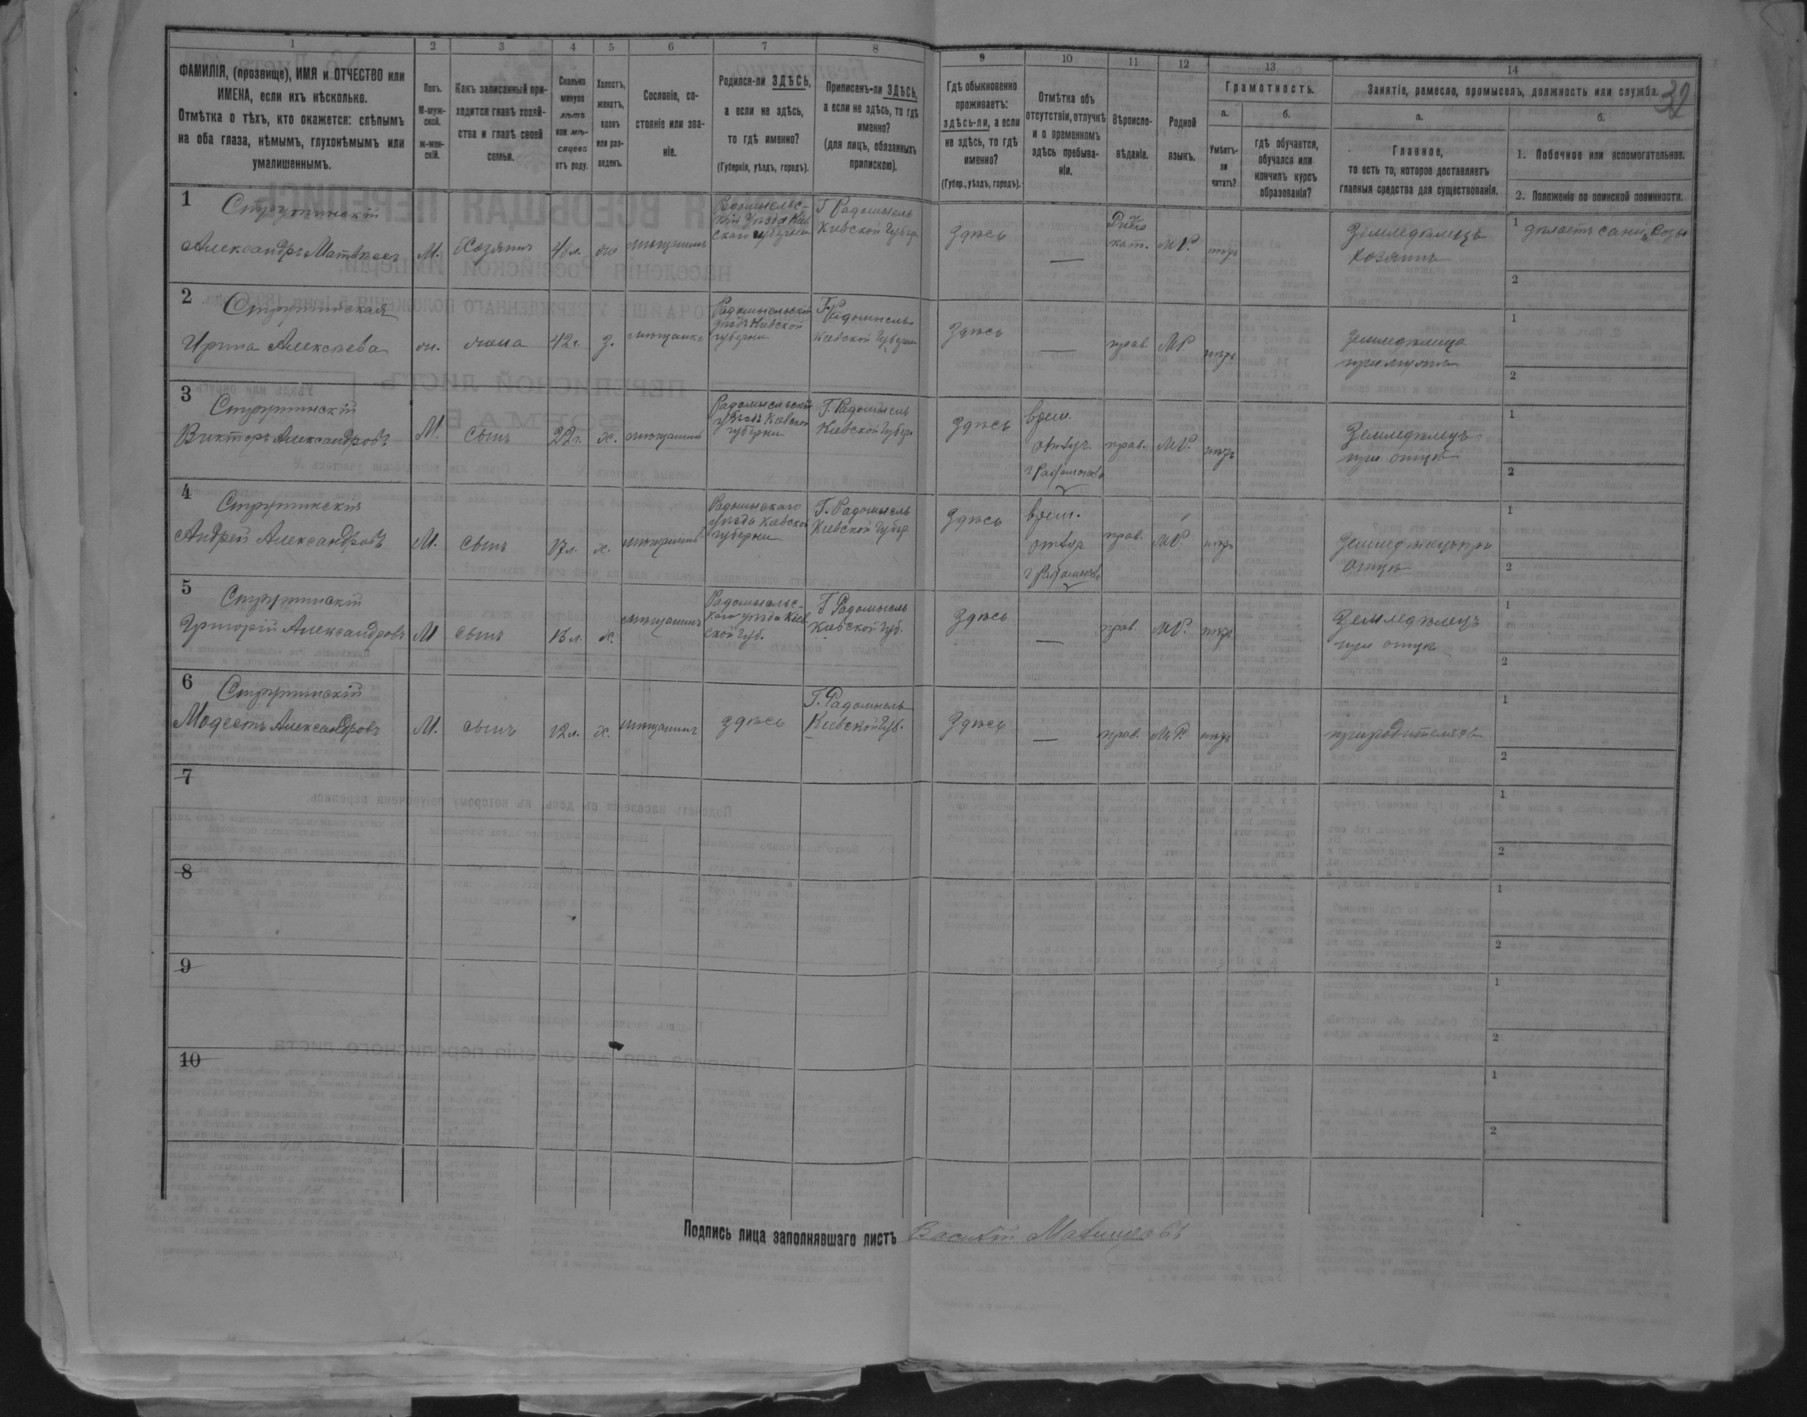 1 2 3 4 5 6 7 8 9 10 11 12 13 14
32
ФАМИЛІЯ, (прозвище), ИМЯ и ОТЧЕСТВО или
ИМЕНА, если ихъ нѣсколько.
Отмѣтка о тѣхъ, кто окажется: слѣпымъ
на оба глаза, нѣмымъ, глухонѣмымъ или
умалишеннымъ.
Полъ.
М-муж-
ской.
ж-жен-
скій.
Какъ записанный при-
ходится главѣ хозяй-
ства и главѣ своей
семьи.
Сколько
минуло
лѣтъ
или мѣ-
сяцевъ
отъ роду.
Холостъ,
женатъ,
вдовъ
или раз-
веденъ.
Сословіе, со-
стояніе или зва-
ніе.
Родился-ли ЗДѢСЬ,
а если не здѣсь,
то гдѣ именно?
(Губернія, уѣздъ, городъ).
Приписанъ-ли ЗДѢСЬ,
а если не здѣсь, то гдѣ
именно?
(для лицъ, обязанныхъ
припискою).
Гдѣ обыкновенно
проживаетъ:
здѣсь-ли, а если
не здѣсь, то гдѣ
именно?
(Губер., уѣздъ, городъ).
Отмѣтка объ
отсутствіи, отлучкѣ
и о временномъ
здѣсь пребыва-
ніи.
Вѣроиспо-
вѣданіе.
Родной
языкъ.
Грамотность.
а.
Умѣетъ-
ли
читать?
б.
гдѣ обучается,
обучался или
кончилъ курсъ
образованія?
Занятіе, ремесло, промыселъ, должность или служба.
а.
Главное,
то есть то, которое доставляетъ
главныя средства для существованія.
б.
1. Побочное или вспомогательное.
2. Положеніе по воинской повинности.
1
Струтинскій
Александръ Матвѣевъ М. Хозяинъ мѣщанинъ
Г. Радомысль
Кіевской Губер
Здѣсь
—
Римско
кат. М.Р.
Земледѣлецъ
хозяинъ
1 дѣлаетъ сани,
2
2
Струтинская
Ирина Алексѣева жена 42 г. мѣщанка
Радомысльскій
уѣздъ Кіевской
губерніи
Г. Радомысль
Кіевской Губерн
Здѣсь
—
прав М.Р
Земледѣлица
при мужѣ
1
2
3
Струтинскій
Викторъ Александровъ М. Сынъ 22 г. х. мѣщанинъ
Радомысльскій
уѣздъ Кіевской
губерніи
Г. Радомысль
Кіевской Губер
Здѣсь
врем.
отлуч.
г Радомысль
прав. М.Р.
Земледѣлецъ
при отцѣ
1
2
4
Струтинскій
Андрей Александровъ М. Сынъ 17 л. х. мѣщанинъ
уѣзда Кіевской
губерніи
Г. Радомысль
Кіевской Губер
Здѣсь
врем.
г Радомысль
прав. М.Р.
Земледѣлецъ при
отцѣ
1
2
5
Струтинскій
Григорій Александровъ М Сынъ х. мѣщанинъ
Радомысльс-
каго уѣзда Кіев
ской Губ.
Г Радомысль
Кіевской Губ.
Здѣсь
—
прав М.Р.
Земледѣлецъ
при отцѣ
1
2
6
Струтинскій
Модестъ Александровъ М. сынъ 12 л. х. мѣщанинъ здѣсь
Г. Радомысль
Кіевской Губ.
Здѣсь
—
прав. М.Р.
1
2
7
1
2
8
1
2
9
1
2
10
1
2
Подпись лица заполнявшаго листъ